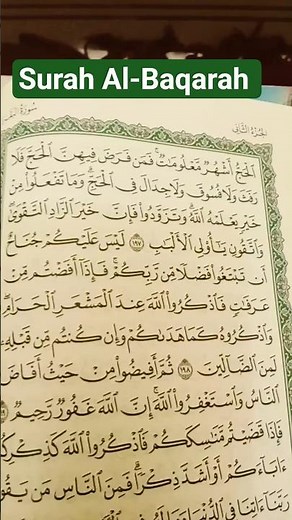 Surah Al-Baqarah
الجزء الثاني
سورة
الْحَجُّ أَشْهُرٌ مَّعْلُومَاتٌ فَمَن فَرَضَ فِيهِنَّ الْحَجَّ فَلَا
رَفَثَ وَلَا فُسُوقَ وَلَا جِدَالَ فِي الْحَجِّ وَمَا تَفْعَلُوا مِنْ
خَيْرٍ يَعْلَمْهُ اللَّهُ وَتَزَوَّدُوا فَإِنَّ خَيْرَ الزَّادِ التَّقْوَىٰ
وَاتَّقُونِ يَا أُولِي الْأَلْبَابِ ١٩٧ لَيْسَ عَلَيْكُمْ جُنَاحٌ
أَن تَبْتَغُوا فَضْلًا مِّن رَّبِّكُمْ فَإِذَا أَفَضْتُم مِّنْ
عَرَفَاتٍ فَاذْكُرُوا اللَّهَ عِندَ الْمَشْعَرِ الْحَرَامِ
وَاذْكُرُوهُ كَمَا هَدَاكُمْ وَإِن كُنتُم مِّن قَبْلِهِ
لَمِنَ الضَّالِّينَ ١٩٨ ثُمَّ أَفِيضُوا مِنْ حَيْثُ أَفَاضَ
النَّاسُ وَاسْتَغْفِرُوا اللَّهَ إِنَّ اللَّهَ غَفُورٌ رَّحِيمٌ
فَإِذَا قَضَيْتُم مَّنَاسِكَكُمْ فَاذْكُرُوا اللَّهَ كَذِكْرِكُمْ
آبَاءَكُمْ أَوْ أَشَدَّ ذِكْرًا فَمِنَ النَّاسِ مَن يَقُو
رَبَّنَا آتِنَا فِي الدُّنْيَا وَمَا لَهُ